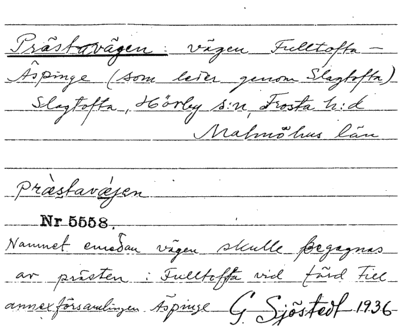 Prästavägen : vägen Fulltofta –
Äspinge (som leder genom Slagtofta)
Slagtofta, Hörby s:n, Frosta h:d
Malmöhus län
præstavæjen
Nr 5558.
Namnet emedan vägen skulle begagnas
av prästen i Fulltofta vid färd till
annexförsamlingen Äspinge G Sjöstedt 1936